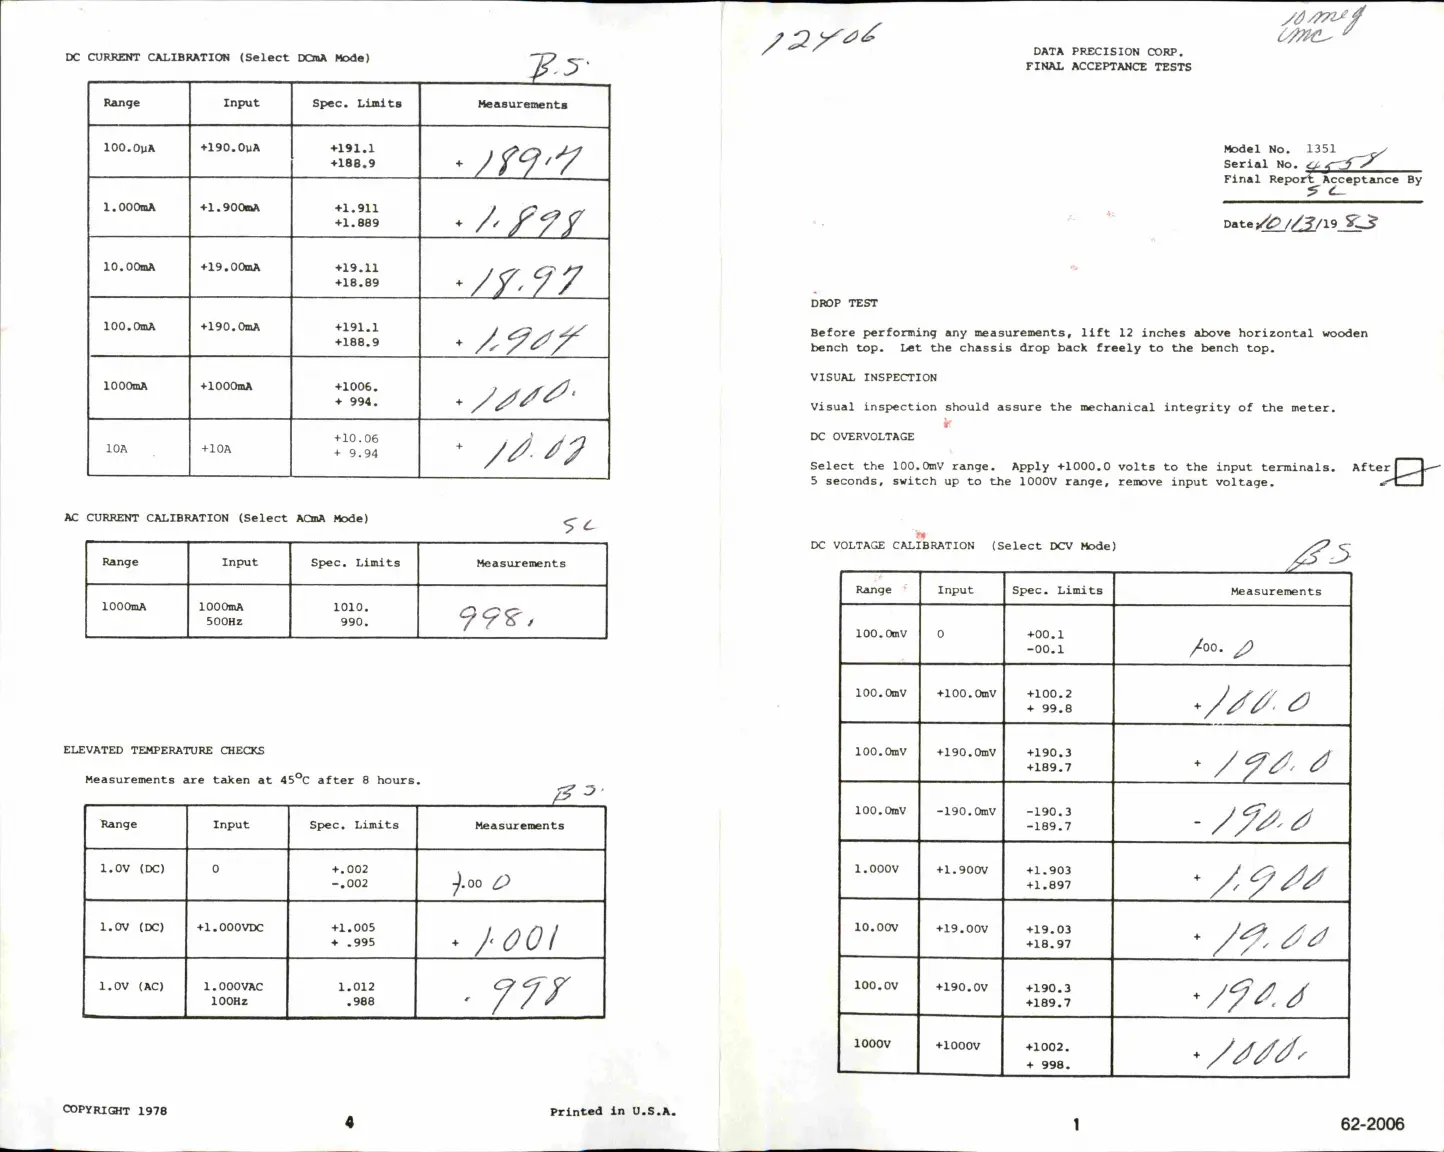 DC CURRENT CALIBRATION (Select DCmA Mode)
B.S.
Range Input Spec. Limits Measurements
100.0µA +190.0µA +191.1 + 189.7
+188.9
1.000mA +1.900mA +1.911 + 1.898
+1.889
10.00mA +19.00mA +19.11 + 18.97
+18.89
100.0mA +190.0mA +191.1 + 1.904
+188.9
1000mA +1000mA +1006. + 1000.
+ 994.
10A +10A +10.06 + 10.02
+ 9.94
AC CURRENT CALIBRATION (Select ACmA Mode)
SL
Range Input Spec. Limits Measurements
1000mA 1000mA 1010. 998.
500Hz 990.
ELEVATED TEMPERATURE CHECKS
Measurements are taken at 45°C after 8 hours.
B S.
Range Input Spec. Limits Measurements
1.0V (DC) 0 +.002 +.00 0
-.002
1.0V (DC) +1.000VDC +1.005 + 1.001
+ .995
1.0V (AC) 1.000VAC 1.012 .998
100Hz .988
COPYRIGHT 1978
4
Printed in U.S.A.
12406
10 meg
DATA PRECISION CORP.
FINAL ACCEPTANCE TESTS
Model No. 1351
Serial No. 4558
Final Report Acceptance By
SL
Date: 10/13/1983
DROP TEST
Before performing any measurements, lift 12 inches above horizontal wooden
bench top. Let the chassis drop back freely to the bench top.
VISUAL INSPECTION
Visual inspection should assure the mechanical integrity of the meter.
DC OVERVOLTAGE
Select the 100.0mV range. Apply +1000.0 volts to the input terminals. After
5 seconds, switch up to the 1000V range, remove input voltage.
DC VOLTAGE CALIBRATION (Select DCV Mode)
B.S
Range Input Spec. Limits Measurements
100.0mV 0 +00.1 +00. 0
-00.1
100.0mV +100.0mV +100.2 + 100.0
+ 99.8
100.0mV +190.0mV +190.3 + 190.0
+189.7
100.0mV -190.0mV -190.3 - 190.0
-189.7
1.000V +1.900V +1.903 + 1.900
+1.897
10.00V +19.00V +19.03 + 19.00
+18.97
100.0V +190.0V +190.3 + 190.0
+189.7
1000V +1000V +1002. + 1000.
+ 998.
1
62-2006